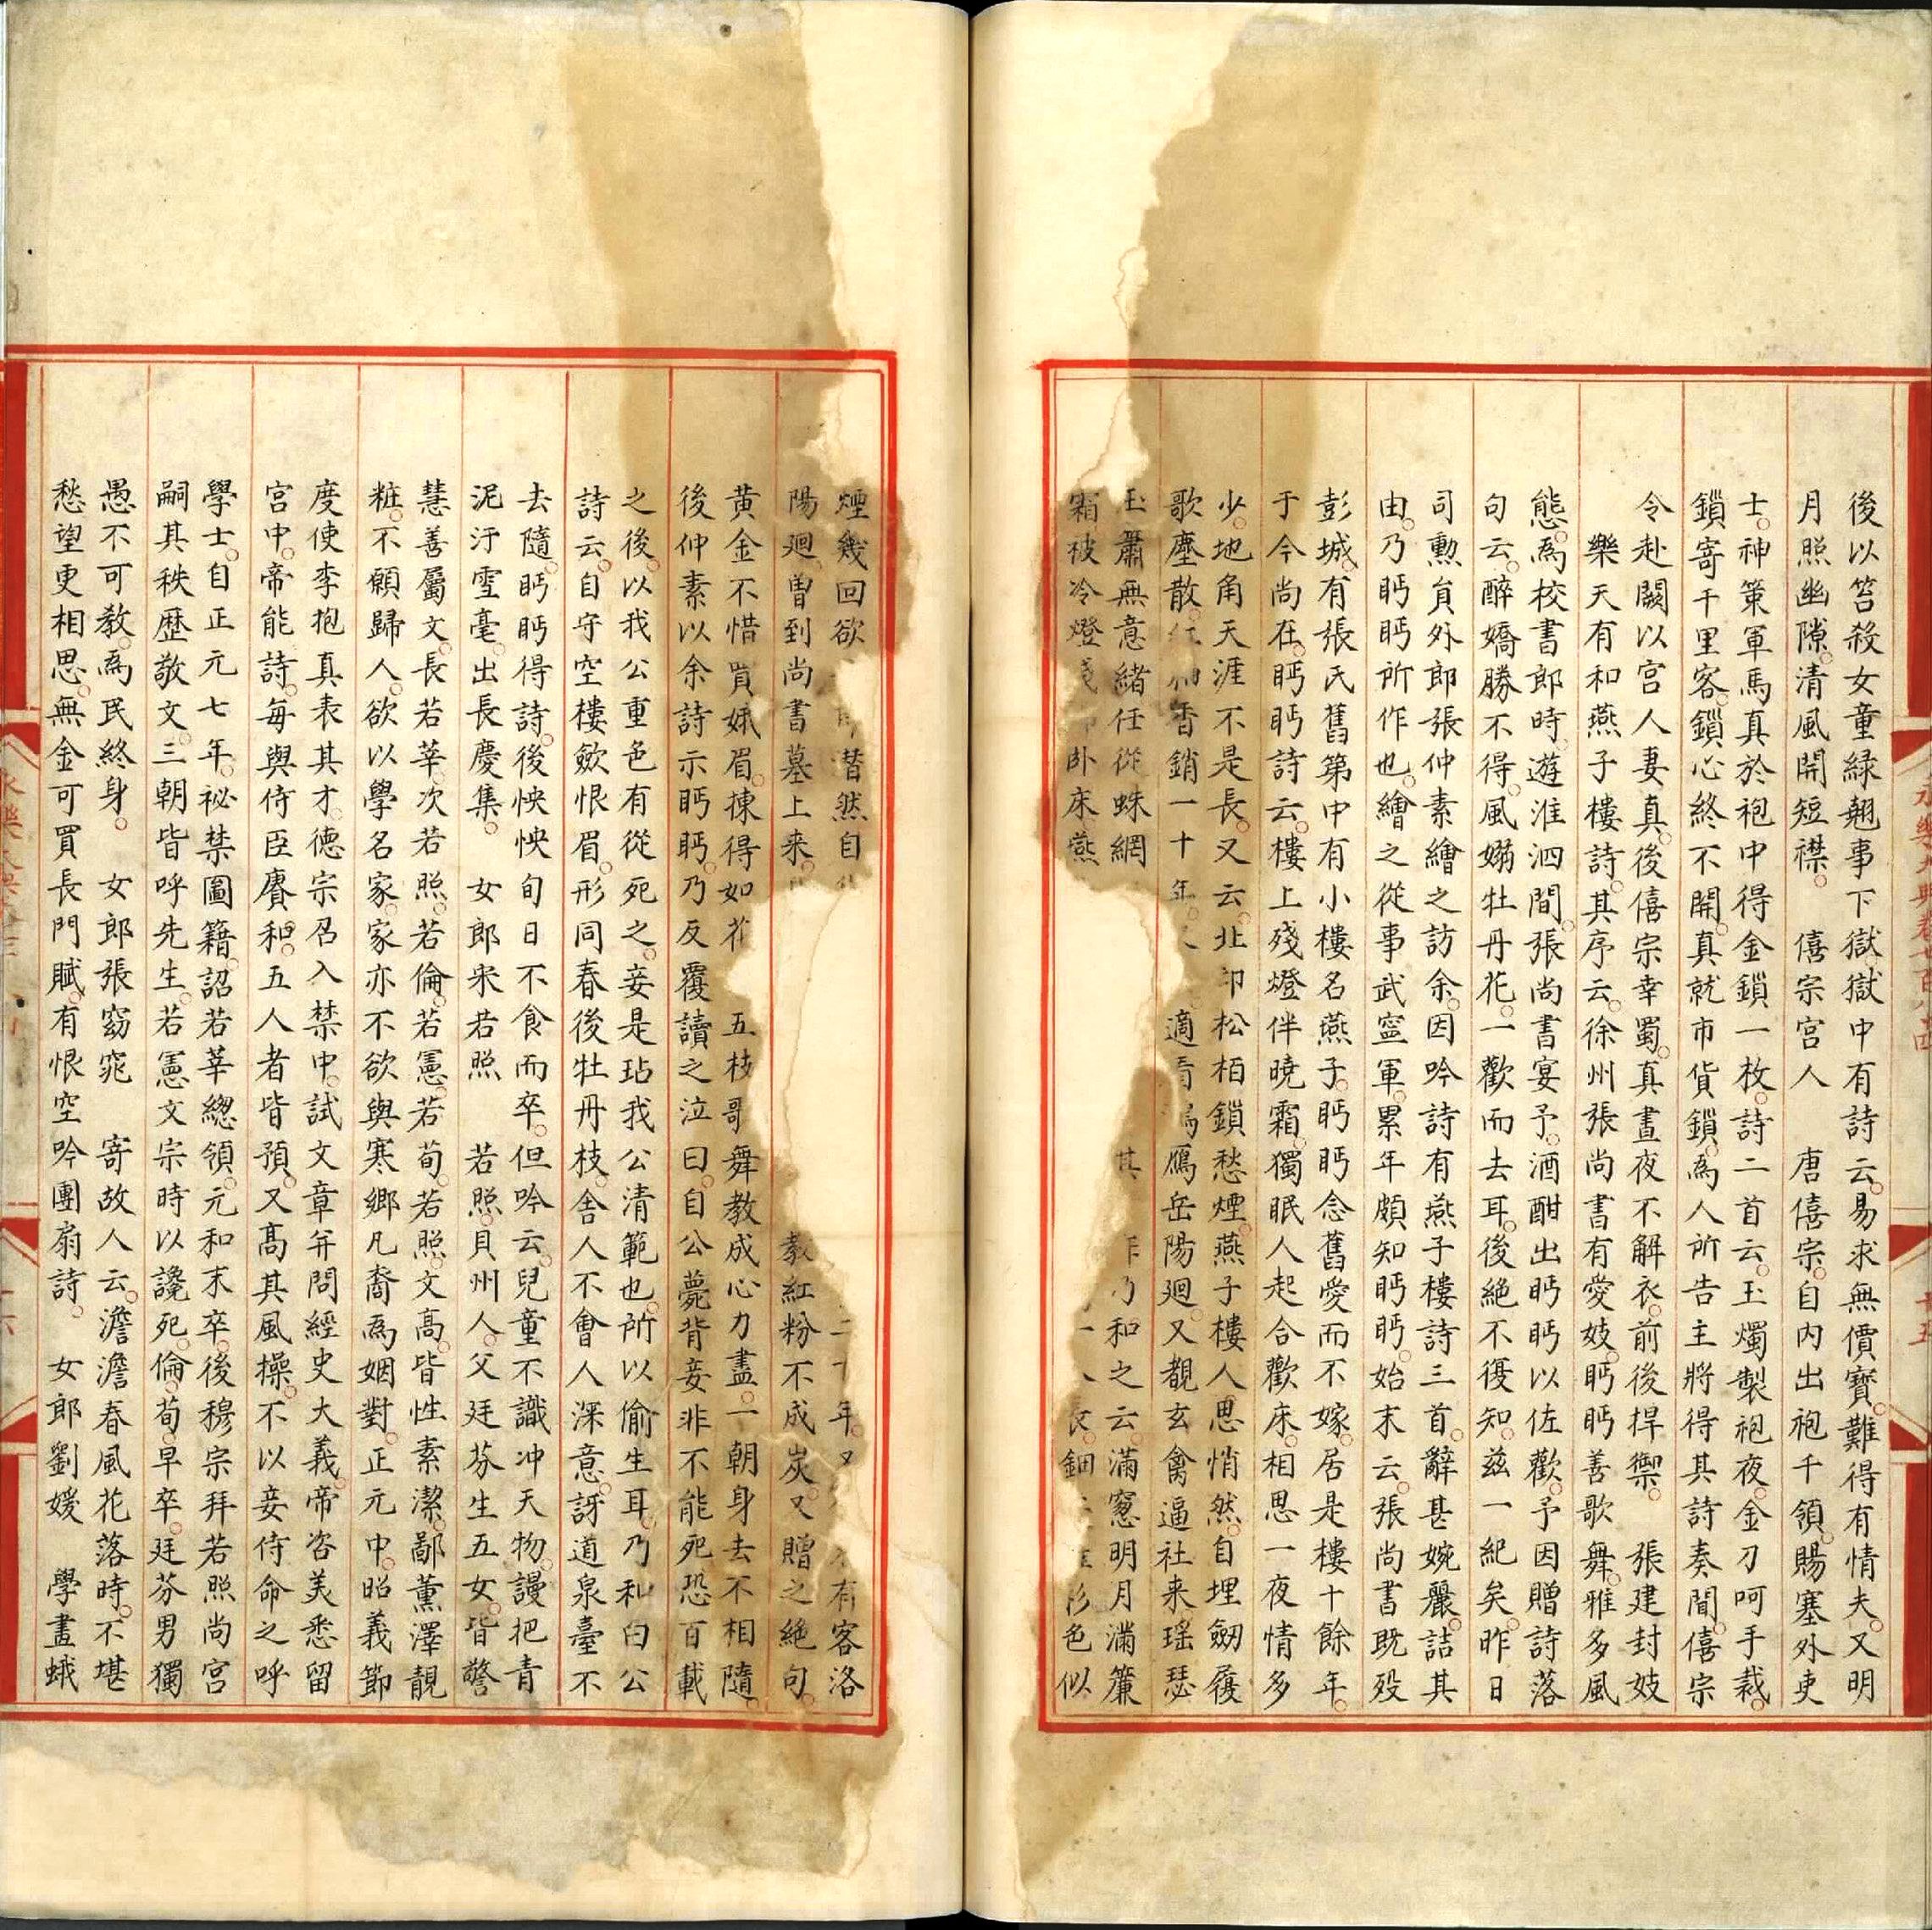 後以笞殺女童緑翹事下獄獄中有詩云易求無價寶難得有情夫又明
月照幽隙清風開短襟　僖宗宫人　唐僖宗自内出袍千領賜塞外吏
士神策軍馬真於袍中得金鎖一枚詩二首云玉燭製袍夜金刀呵手裁
鎖寄千里客鎖心終不開真就市貨鎖為人所告主將得其詩奏聞僖宗
令赴闕以宫人妻真後僖宗幸蜀真晝夜不解衣前後捍禦　張建封妓
樂天有和燕子樓詩其序云徐州張尚書有愛妓盻盻善歌舞雅多風
態為校書郎時遊淮泗間張尚書宴予酒酣出盻盻以佐歡予因贈詩落
句云醉嬌勝不得風嫋牡丹花一歡而去耳後絶不復知兹一紀矣昨日
司勳員外郎張仲素繪之訪余因吟詩有燕子樓詩三首辭甚婉麗詰其
由乃盻盻所作也繪之從事武寧軍累年頗知盻盻始末云張尚書既殁
彭城有張氏舊第中有小樓名燕子盻盻念舊愛而不嫁居是樓十餘年
于今尚在盻盻詩云樓上殘燈伴曉霜獨眠人起合歡床相思一夜情多
少地角天涯不是長又云北邙松柏鎖愁煙燕子樓人思悄然自埋劒履
歌塵散香銷一十年適鴈岳陽迴又覩玄禽逼社来瑶瑟
玉簫無意緒任從蛛網其乃和之云滿窻明月滿簾
霜被冷燈卧床燕一鈿色似
煙幾回欲潸然自年有客洛
陽廻曽到尚書墓上来教紅粉不成炭又贈之絶句
黄金不惜買娥眉揀得如花五枝歌舞教成心力盡一朝身去不相隨
後仲素以余詩示盻盻乃反覆讀之泣曰自公薨背妾非不能死恐百載
之後以我公重色有從死之妾是玷我公清範也所以偷生耳乃和白公
詩云自守空樓歛恨眉形同春後牡丹枝舎人不會人深意訝道泉臺不
去隨盻盻得詩後怏怏旬日不食而卒但吟云兒童不識冲天物謾把青
泥汙雪毫出長慶集　女郎宋若照　若照貝州人父廷芬生五女皆警
慧善屬文長若莘次若照若倫若憲若荀若照文髙皆性素潔鄙薰澤靚
粧不願歸人欲以學名家家亦不欲與寒鄉凡裔為姻對正元中昭義節
度使李抱真表其才德宗召入禁中試文章并問經史大義帝咨美悉留
宮中帝能詩每與侍臣賡和五人者皆預又髙其風操不以妾侍命之呼
學士自正元七年祕禁圖籍詔若莘緫領元和末卒後穆宗拜若照尚宫
嗣其秩歴敬文三朝皆呼先生若憲文宗時以讒死倫荀早卒廷芬男獨
愚不可敎為民終身　女郎張窈窕　寄故人云澹澹春風花落時不堪
愁望更相思無金可買長門賦有恨空吟團扇詩　女郎劉媛　學畫蛾